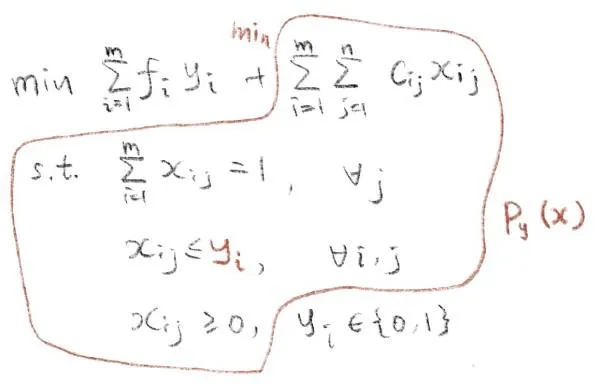 min
min Σ_{i=1}^{m} f_i y_i + Σ_{i=1}^{m} Σ_{j=1}^{n} C_{ij} x_{ij}
s.t. Σ_{i=1}^{m} x_{ij} = 1, ∀j
x_{ij} ≤ y_i, ∀i,j
P_y(x)
x_{ij} ≥ 0, y_i ∈ {0,1}